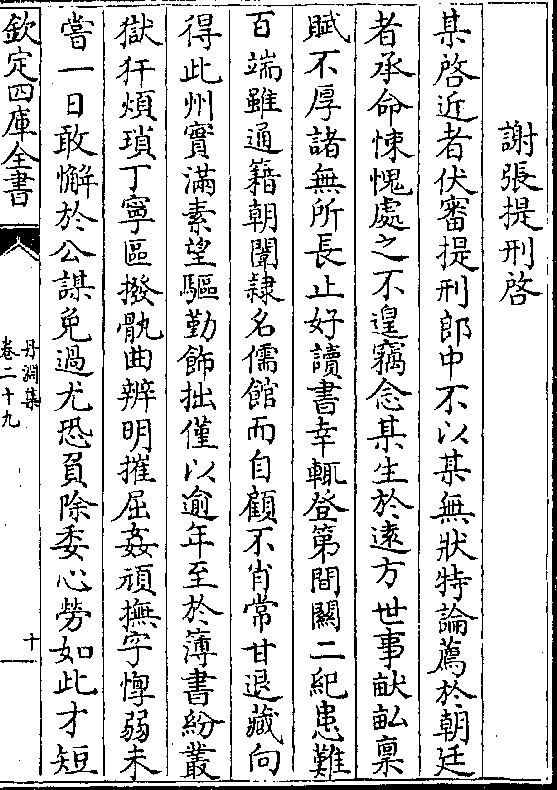 謝張提刑啓
某啓近者伏審提刑郎中不以某無狀特論薦於朝廷
者承命悚愧處之不遑竊念某生於遠方世事畎畝稟
賦不厚諸無所長止好讀書幸輒登第間關二紀患難
百端雖通籍朝闈隷名儒館而自顧不肖常甘退藏向
得此州實滿素望驅勤飾拙僅以逾年至於薄書紛叢
獄犴煩瑣丁寧區撥骫曲辨明摧屈姦頑撫字惸弱未
嘗一日敢懈於公謀免過尤恐負除委心勞如此才短
欽定四庫全書
丹淵集
卷二十九
十